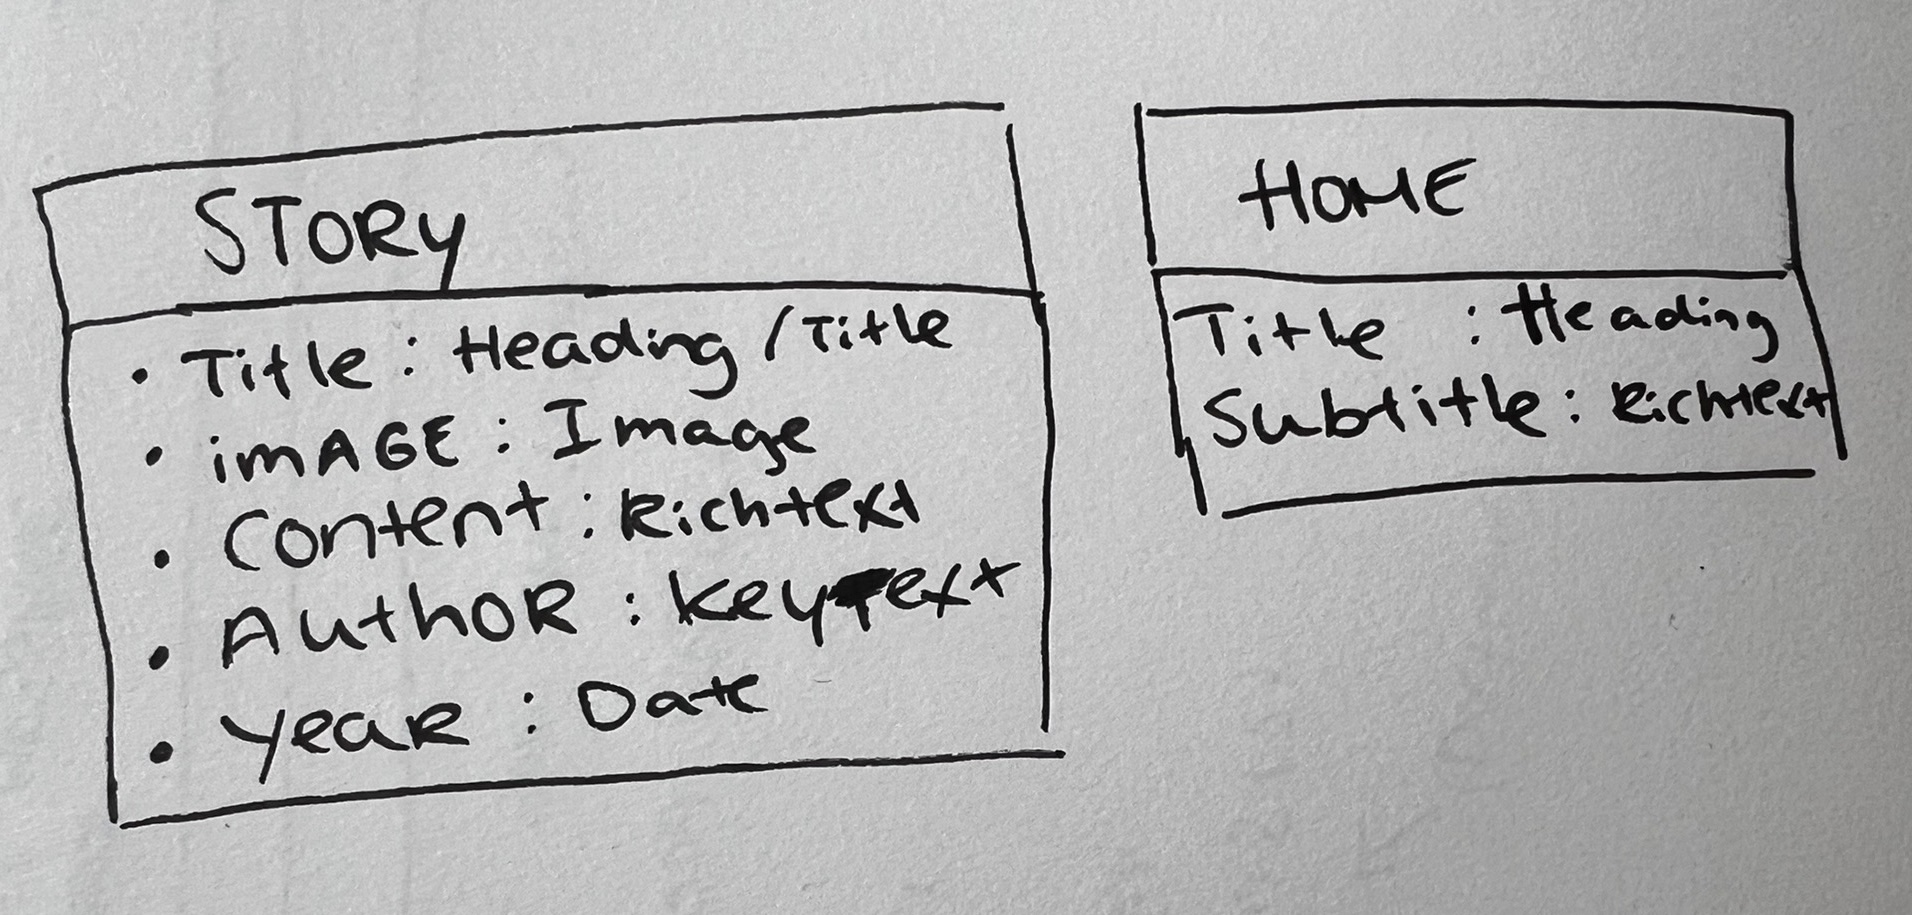 STORY
• Title: Heading / Title
• imAGE: Image
• Content: Richtext
• AuthOR: KeyText
• YeaR: Date
HOME
Title: Heading
Subtitle: Richtext